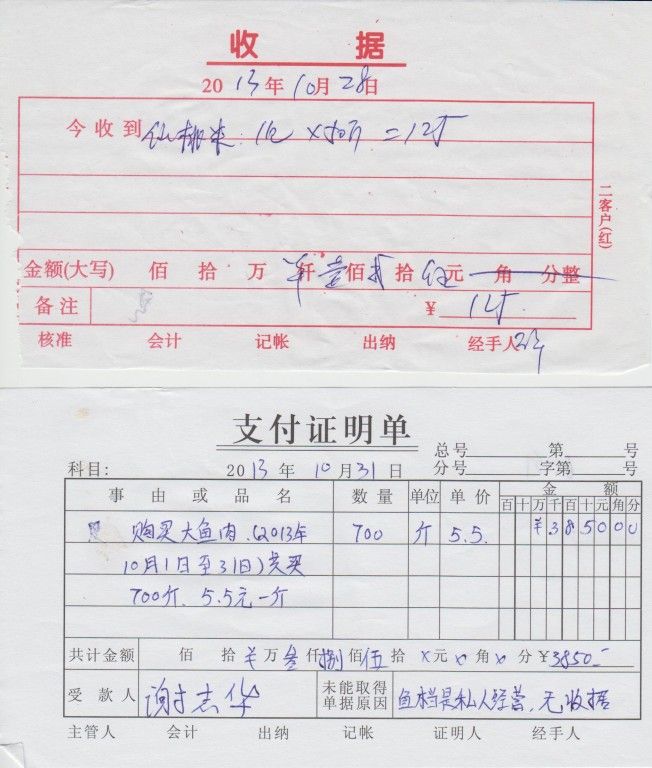 收 据
2013年10月28日
今收到
二客户(红)
金额(大写) 佰 拾 万 仟壹佰贰拾伍元 角 分整
备注 ¥ 125
核准 会计 记帐 出纳 经手人
支付证明单
总号 第 号
科目: 2013年10月31日 分号 字第 号
事由或品名 数量 单位 单价 金额
百十万千百十元角分
购买大鱼肉(2013年 700 斤 5.5. ¥385000
10月1日至31日)共买
700斤、5.5元一斤
共计金额 佰 拾¥万叁仟捌佰伍拾 x元x角x分¥3850-
受款人 谢志华 未能取得单据原因 鱼档是私人经营,无收据
主管人 会计 出纳 记帐 证明人 经手人